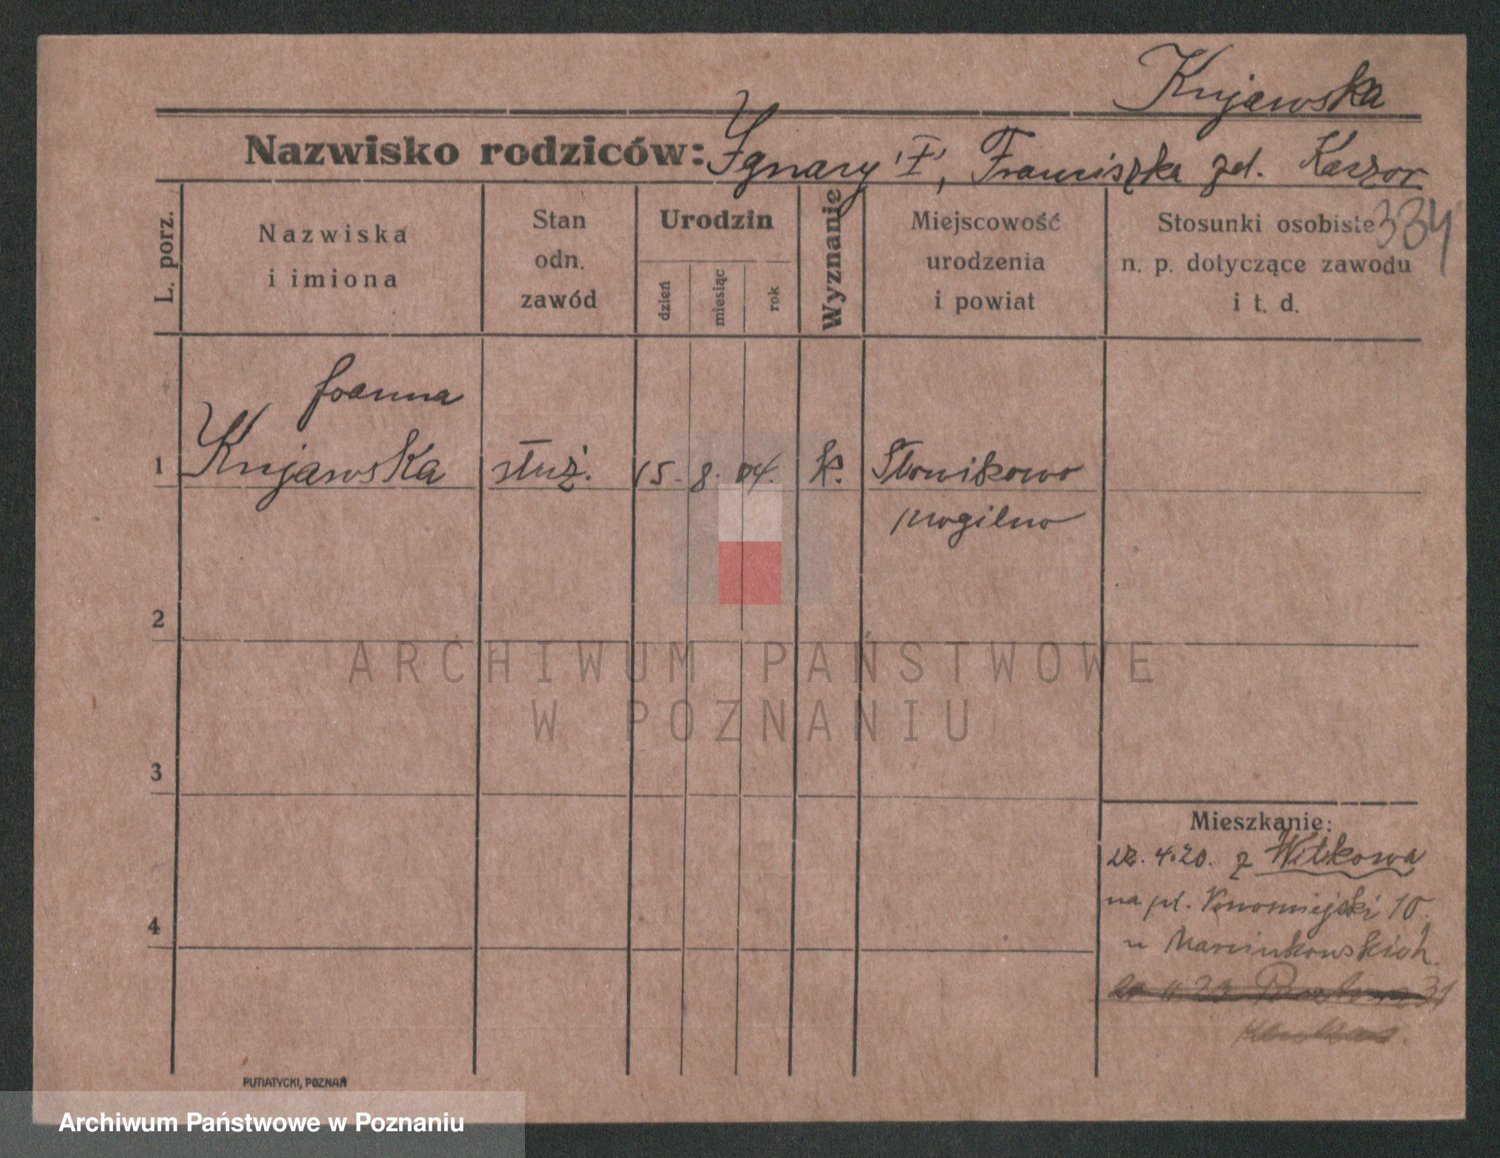 Kujawska
Nazwisko rodziców: Ignacy "I", Franciszka zd. Kaczor
L. porz.
Nazwiska
i imiona
Stan
odn.
zawód
Urodzin
dzień
miesiąc
rok
Wyznanie
Miejscowość
urodzenia
i powiat
Stosunki osobiste
n. p. dotyczące zawodu
i t. d.
334
Joanna
1 Kujawska służ. 15. 8. 04. k. Słowikowo
mogilno
2
3
4
Mieszkanie:
22. 4. 20. z Witkowa
na pl. 10.
u Marcinkowskich.
31
PUTIATYCKI, POZNAŃ
ARCHIWUM PAŃSTWOWE
W POZNANIU
Archiwum Państwowe w Poznaniu